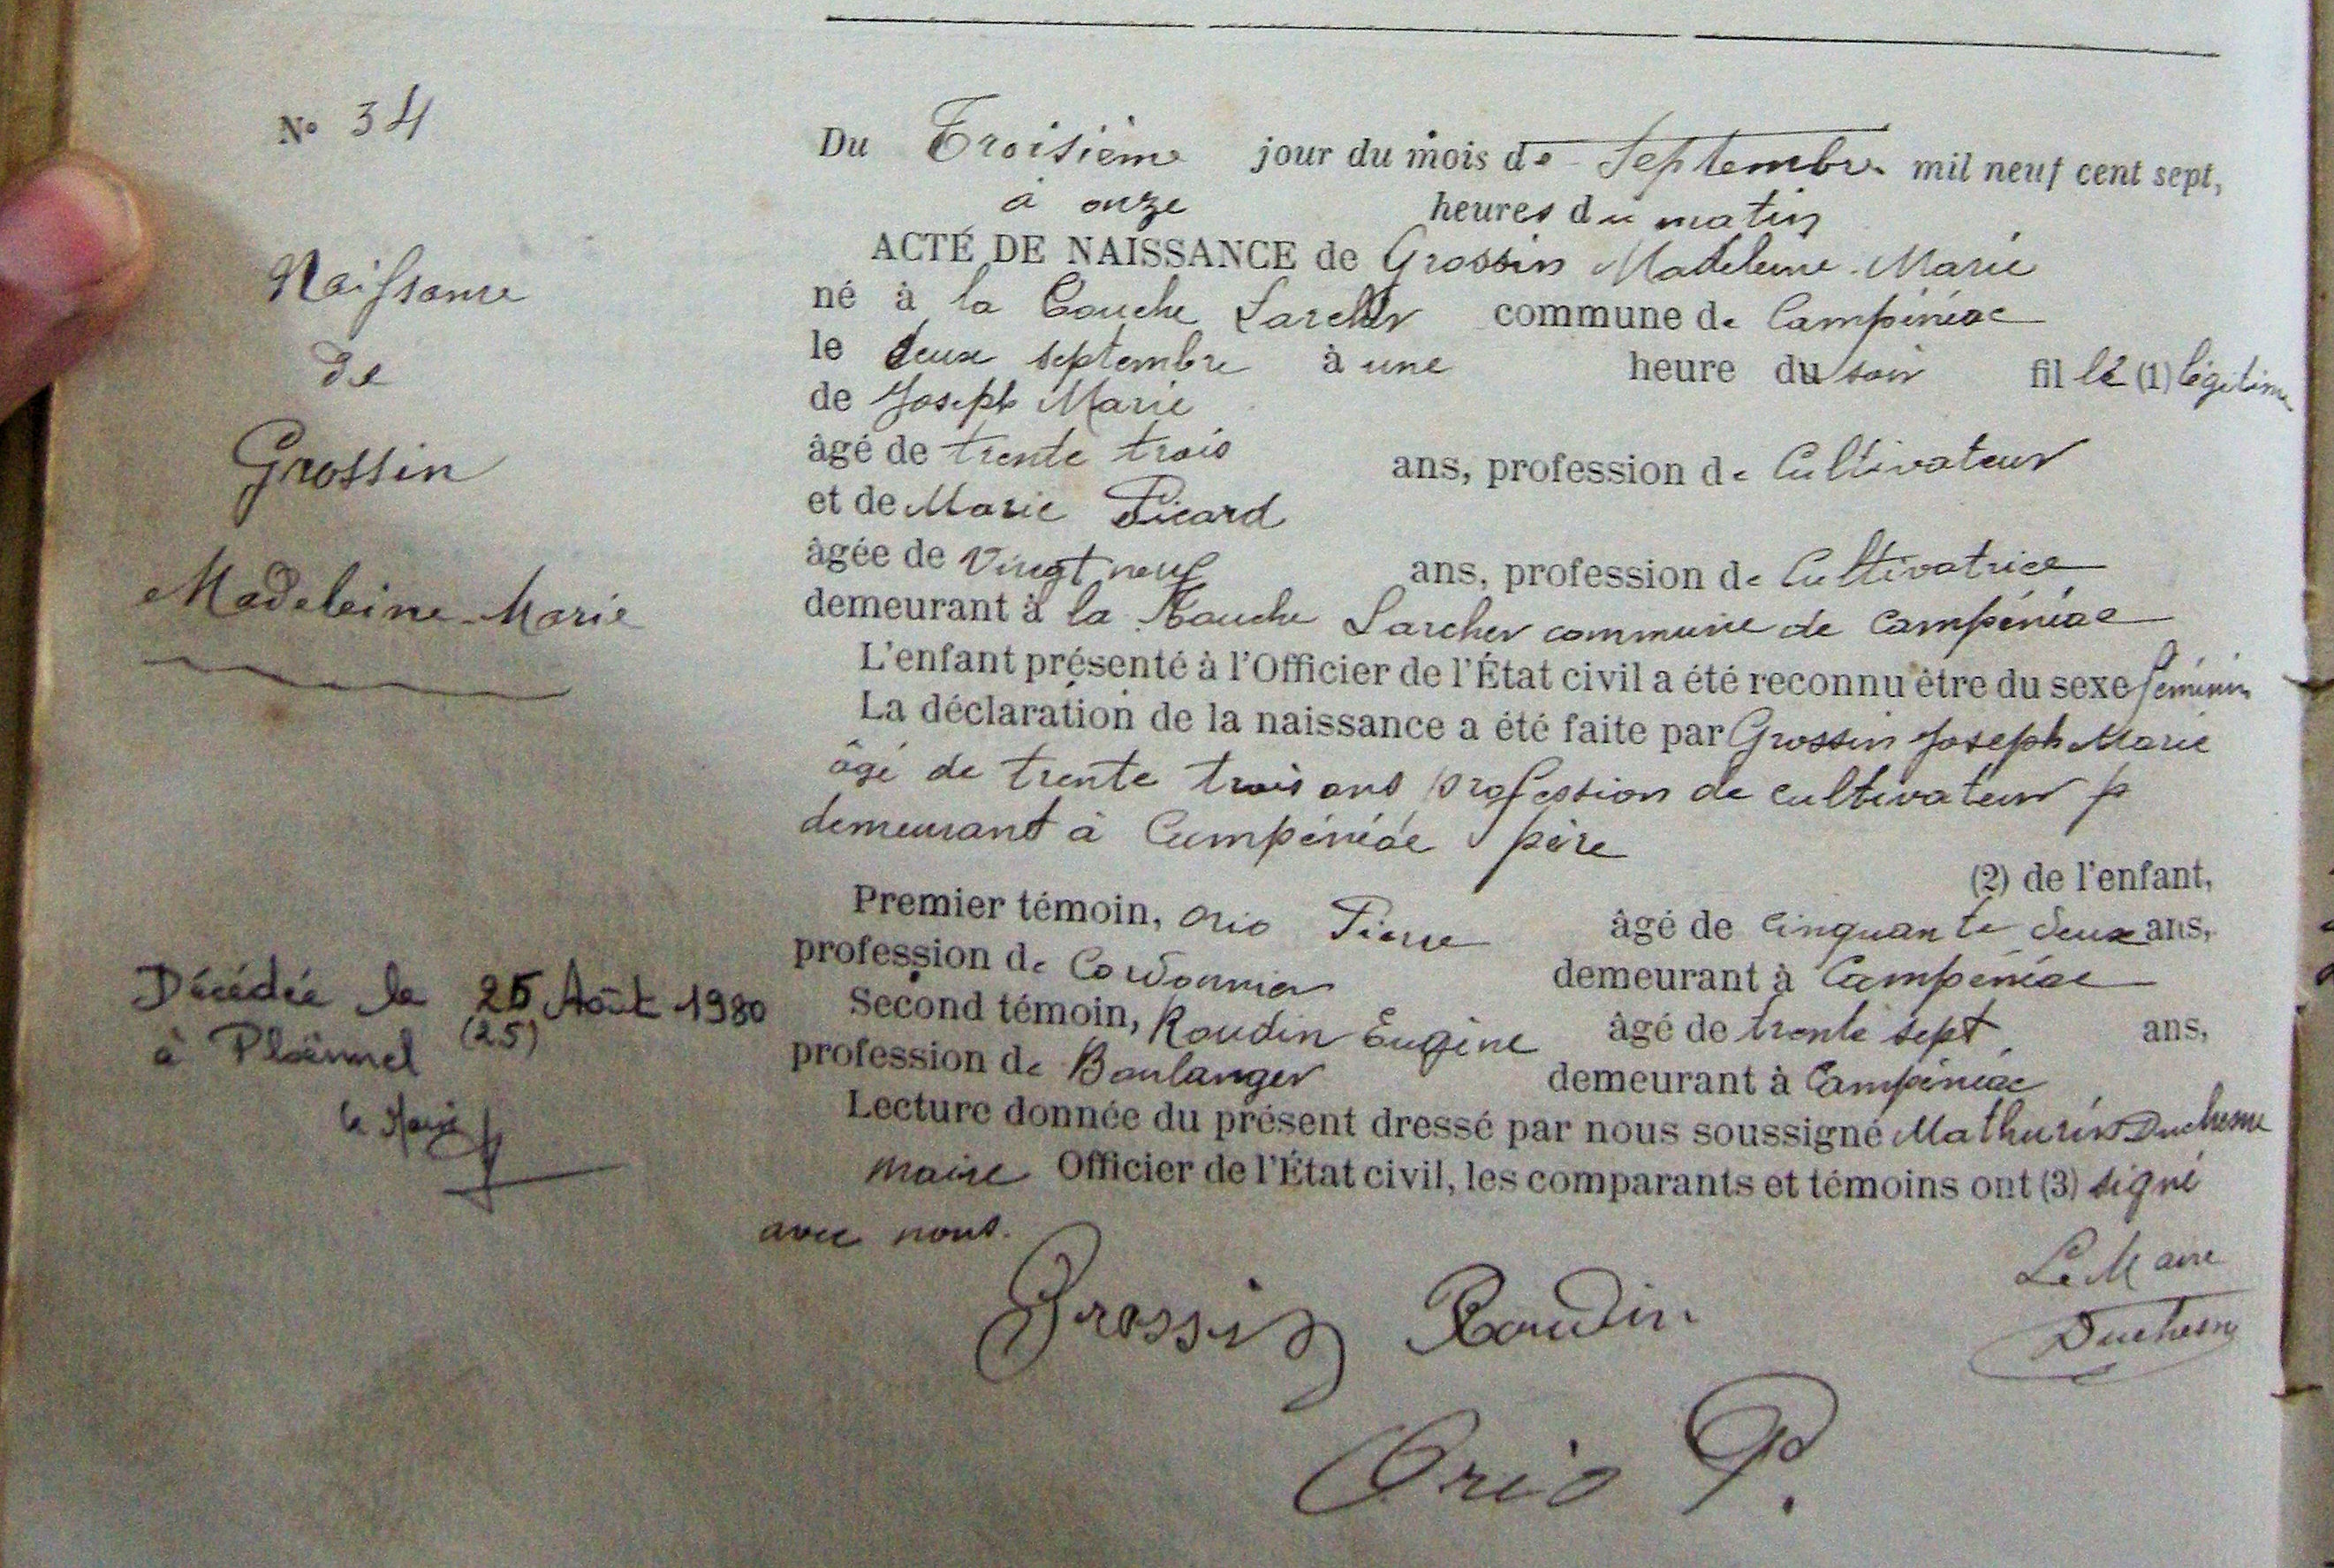 N° 34
Du Troisième jour du mois de Septembre mil neuf cent sept,
à onze heures du matin
ACTE DE NAISSANCE de Grossin Madeleine-Marie
né à la Touche Larcher commune de Campénéac
le deux septembre à une heure du soir fille (1) légitime
de Joseph Marie
âgé de trente trois ans, profession de Cultivateur
et de Marie Picard
âgée de Vingt neuf ans, profession de Cultivatrice
demeurant à la Touche Larcher commune de Campénéac
L'enfant présenté à l'Officier de l'État civil a été reconnu être du sexe féminin
La déclaration de la naissance a été faite par Grossin Joseph Marie
âgé de trente trois ans profession de cultivateur p
demeurant à Campénéac père
(2) de l'enfant,
Premier témoin, Orio Pierre âgé de cinquante deux ans,
profession de Cordonnier demeurant à Campénéac
Second témoin, Roudin Eugène âgé de trente sept ans,
profession de Boulanger demeurant à Campénéac
Lecture donnée du présent dressé par nous soussigné Mathurin Duchesne
maire Officier de l'État civil, les comparants et témoins ont (3) signé
avec nous.
Le Maire
Grossin Roudin Duchesne
Orio P.
Naissance
de
Grossin
Madeleine-Marie
Décédée le 25 Août 1980
(25)
à Ploërmel
le Maire